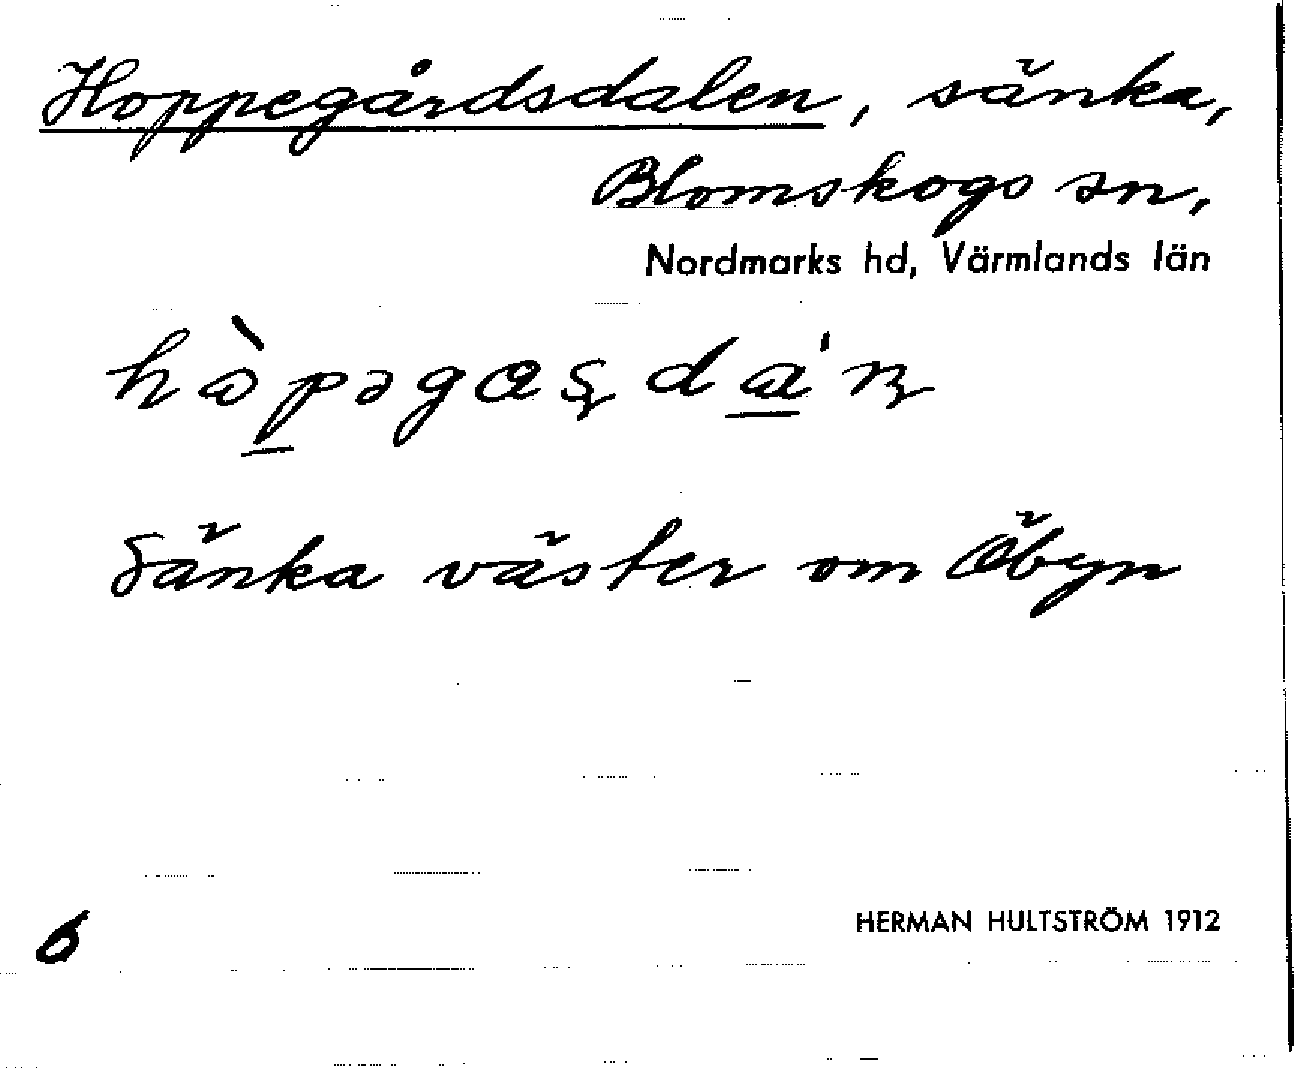 Hoppegårdsdalen, sänka,
Blomskogs sn,
Nordmarks hd, Värmlands län
Sänka väster om Öbyn
HERMAN HULTSTRÖM 1912
6